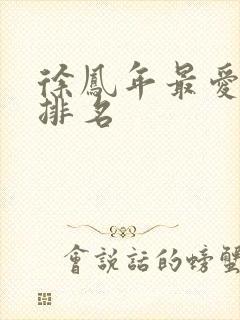 徐鳳年最愛
排名
會說話的螃蟹